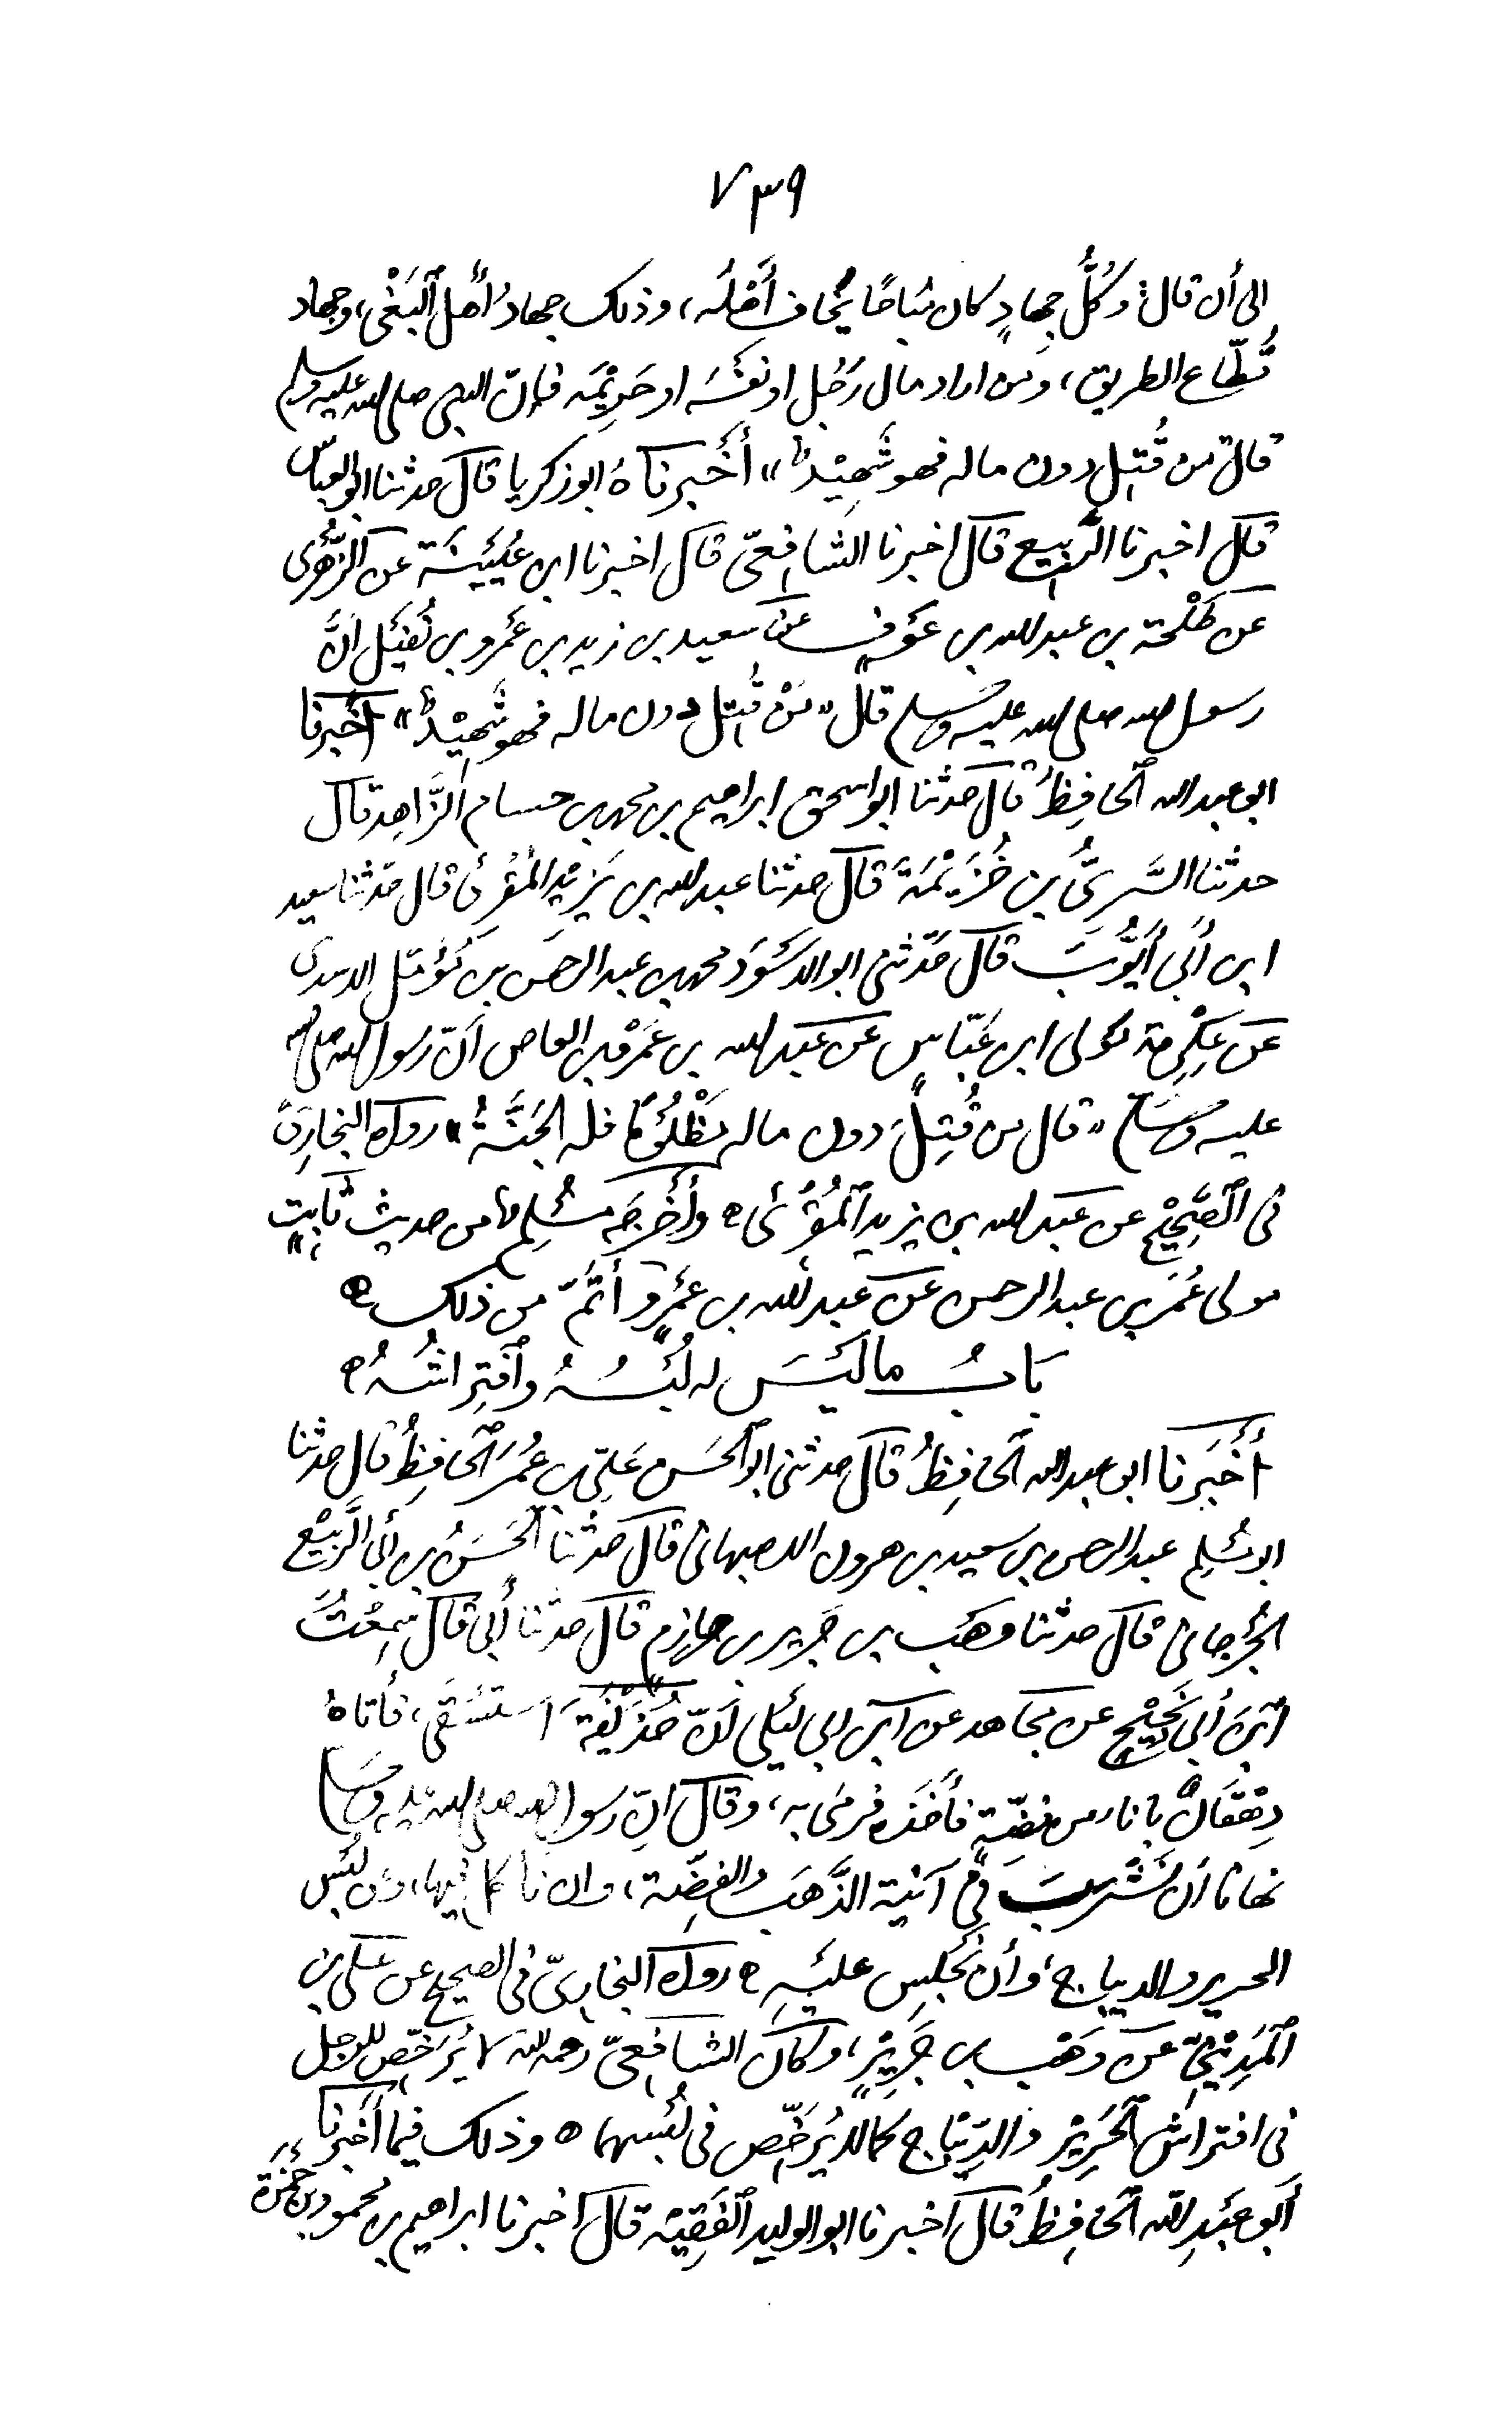 ٧٣٩
الى أن قال: وكُلُّ جهادٍ كان مُبَاحًا يُخاف أَهْلُه، وذلك جهادُ أَهل ٱلبَغْى، وجهاد
قُطّاع الطريق، ومن اراد مال رَجُل او نفسَه او حَرِيْمَه فإنّ النبى صلى الله عليه وسلم
قال: من قُتِل دون ماله فهو شَهِيْدٌ» أَخْبرناهُ ابو زكريا قال حدثنا ابو العباس
قال اخبرنا الرَّبِيع قال اخبرنا الشافِعىّ قال اخبرنا ابن عُيَيْنَة عن الزُّهْرى
عن طَلْحة بن عبد الله بن عَوْفٍ عن سعيد بن زيد بن عَمْرو بن نُفَيْل أنَّ
رسول الله صلى الله عليه وسلم قال «مَنْ قُتِل دون ماله فهو شَهِيْدٌ» أَخْبرنا
ابو عبد الله ٱلحافِظُ قال حدثنا ابو اسحق ابراهيم بن محمد بن حسام الزَّاهِد قال
حدثنا السَّرِىُّ بن خُزَيْمَةَ قال حدثنا عبد الله بن يَزِيْد المُقْرِئ قال حدّثنا سعيد
ابن أَبى أَيُّوبَ قال حَدّثنى ابو الاسْوَد محمد بن عبد الرحمن بن نَوْفَل الاسدى
عن عِكْرِمة مولى ابن عَبّاسٍ عن عبد الله بن عَمْرو بن العاص أنّ رسول الله صلى الله
عليه وسلم «قال من قُتِلَ دون ماله مَظْلُوْمًا فله الجَنَّةُ» رواه البخارِىّ
فى ٱلصَّحِيْح عن عبد الله بن يزيد ٱلمُقْرِئ ه وأَخْرَجَه مُسْلِم من حديث ثَابِتٍ
مولى عُمَر بن عبد الرحمن عن عبد الله بن عَمْرٍو أَتَمَّ من ذلك ه
بَابُ ما لَيْسَ له لُبْسُهُ وٱفْتِراشُهُ ه
أَخْبَرنا ابو عبد الله ٱلحافِظُ قال حدثنى ابو ٱلحَسَن عَلِىّ بن عُمَر ٱلحافِظُ قال حدثنا
ابو مُسْلِم عبد الرحمن بن سعيد بن هرون الاصبهانى قال حدثنا ٱلحَسَنُ بن أَبى الرَّبِيْع
الجُرْجانى قال حدثنا وَهْب بن جَرِير بن حازِم قال حدثنا أَبى قال سَمِعْتُ
ٱبْنَ أَبى نَجِيْح عن مجاهد عن ٱبن ابى لَيْلى أنّ حُذَيْفَةَ اسْتَسْقَى، فأتاهُ
دِهْقَانٌ باناء من فِضّةٍ فأَخَذه فرمَى به، وقال انّ رسول الله صلى الله عليه وسلم
نهانا أن نَشْرَبَ فى آنية الذَّهَب والفِضّة، وان نأكل فيها، وعن لُبْسِ
الحرير والديباج، وأن نَجْلِس عليْهِ ه رواه البخارىّ فى الصحيح عن على بن
ٱلمَدِيْنِىّ عن وَهْب بن جَرِيْرٍ، وكان الشافِعىّ رحمه الله لا يُرَخِّص للرجل
فى افتراش ٱلحَرِيْر والدِّيْبَاج كما لا يُرَخِّص فى لُبْسِهما ه وذلك فيما أَخْبرنا
أَبو عَبْدِ الله ٱلحافِظُ قال أخبرنا ابو الوليد ٱلفَقِيْه قال أخبرنا ابراهيم بن محمود بن حَمْزَة